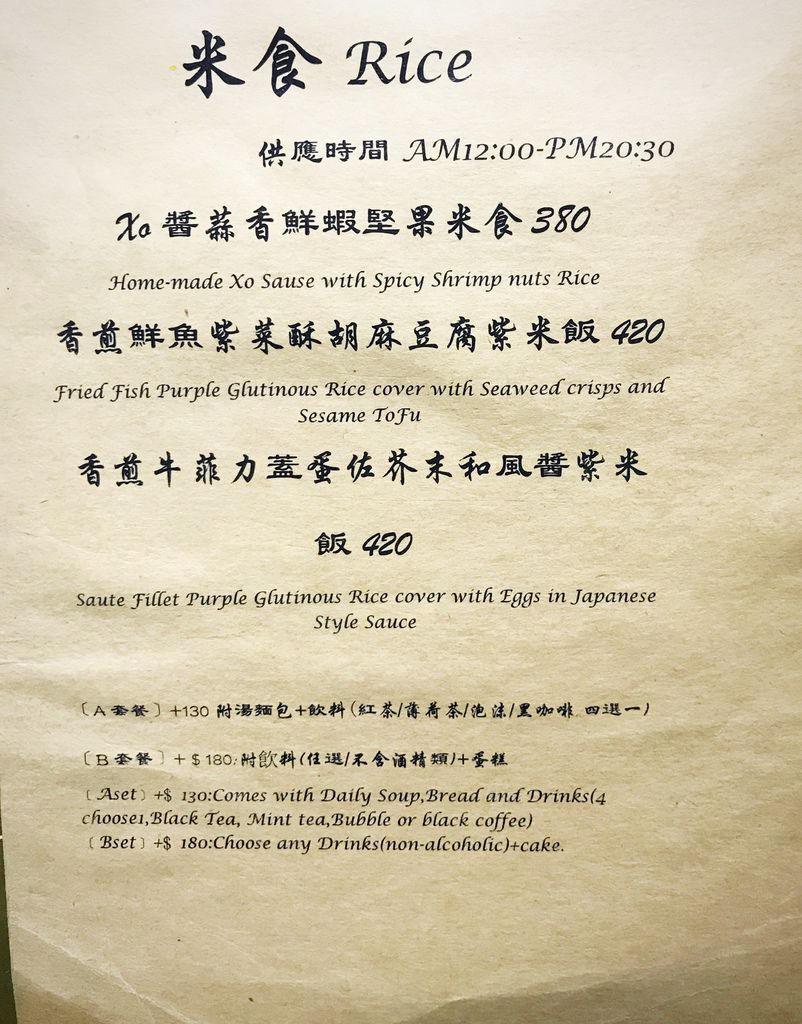 米食 Rice
供應時間 AM12:00-PM20:30
Xo 醬蒜香鮮蝦堅果米食 380
Home-made Xo Sause with Spicy Shrimp nuts Rice
香煎鮮魚紫菜酥胡麻豆腐紫米飯 420
Fried Fish Purple Glutinous Rice cover with Seaweed crisps and
Sesame ToFu
香煎牛菲力蓋蛋佐芥末和風醬紫米
飯 420
Saute Fillet Purple Glutinous Rice cover with Eggs in Japanese
Style Sauce
〔A套餐〕+130 附湯麵包+飲料(紅茶/薄荷茶/泡沫/黑咖啡 四選一)
〔B套餐〕+＄180:附飲料(任選/不含酒精類)+蛋糕
〔Aset〕+$ 130:Comes with Daily Soup,Bread and Drinks(4
choose1,Black Tea, Mint tea,Bubble or black coffee)
〔Bset〕+$ 180:Choose any Drinks(non-alcoholic)+cake.